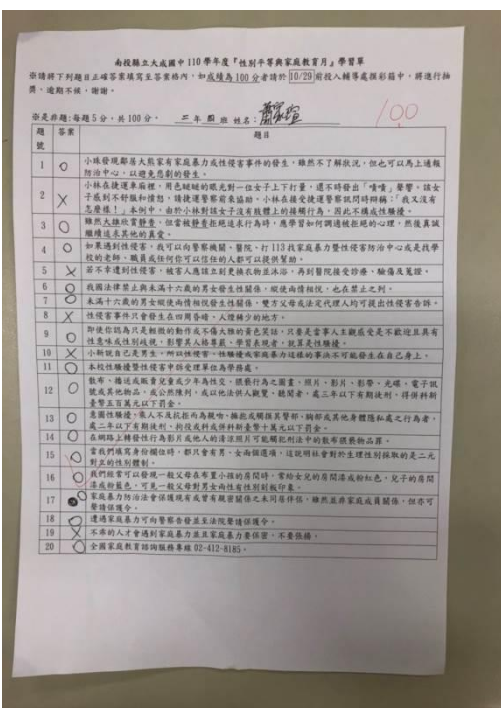 南投縣立大成國中 110 學年度『性別平等與家庭教育月』學習單
※請將下列題目正確答案填寫至答案格內,如成績為 100 分者請於 10/29 前投入輔導處摸彩箱中,將進行抽
獎,逾期不候,謝謝。
※是非題:每題 5 分,共 100 分。 二年 四 班 姓名:
100
題號 答案 題目
1 ○ 小珠發現鄰居大熊家有家庭暴力或性侵害事件的發生,雖然不了解狀況,但也可以馬上通報
防治中心,以避免悲劇的發生。
2 X 小林在捷運車廂裡,用色瞇瞇的眼光對一位女子上下打量,還不時發出「嘖嘖」聲響,該女
子感到不舒服和憤怒,請捷運警察前來協助,小林在接受捷運警察訊問時辯稱:「我又沒有
怎麼樣!」本例中,由於小林對該子沒有肢體上的接觸行為,因此不構成性騷擾。
3 ○ 雖然大雄欣賞靜香,但當被靜香拒絕追求行為時,應學習如何調適被拒絕的心理,然後真誠
繼續追求其他的真愛。
4 ○ 如果遇到性侵害,我可以向警察機關、醫院、打 113 找家庭暴力暨性侵害防治中心或是找學
校的老師、職員或任何你可以信任的人都可以提供幫助。
5 X 若不幸遭到性侵害,被害人應該立刻更換衣物並沐浴,再到醫院接受診療、驗傷及蒐證。
6 ○ 我國法律禁止與未滿十六歲的男女發生性關係,縱使兩情相悅,也在禁止之列。
7 ○ 未滿十六歲的男女縱使兩情相悅發生性關係,雙方父母或法定代理人均可提出性侵害告訴。
8 X 性侵害事件只會發生在四周昏暗、人煙稀少的地方。
9 ○ 即使你認為只是輕微的動作或不傷大雅的黃色笑話,只要是當事人主觀感受是不歡迎且具有
性意味或性別歧視,影響其人格尊嚴、學習表現者,就算是性騷擾。
10 X 小新說自己是男生,所以性侵害、性騷擾或家庭暴力這樣的事決不可能發生在自己身上。
11 ○ 本校性騷擾暨性侵害申訴受理單位為學務處。
12 ○ 散布、播送或販賣兒童或少年為性交、猥褻行為之圖畫、照片、影片、影帶、光碟、電子訊
號或其他物品,或公然陳列,或以他法供人觀覽、聽聞者,處三年以下有期徒刑,得併科新
臺幣五百萬元以下罰金。
13 ○ 意圖性騷擾,乘人不及抗拒而為親吻、擁抱或觸摸其臀部、胸部或其他身體隱私處之行為者,
處二年以下有期徒刑、拘役或科或併科新臺幣十萬元以下罰金。
14 ○ 在網路上轉發性行為影片或他人的清涼照片可能觸犯刑法中的散布猥褻物品罪。
15 ○ 當我們填寫身份欄位時,都只會有男、女兩個選項,這說明社會對於生理性別採取的是二元
對立的性別體制。
16 ○ 我們經常可以發現一般父母在布置小孩的房間時,常給女兒的房間漆成粉紅色,兒子的房間
漆成粉藍色,可見一般父母對男女而性有性別刻板印象。
17 ○ 家庭暴力防治法會保護現有或曾有親密關係之未同居伴侶,雖然並非家庭成員關係,但亦可
聲請保護令。
18 ○ 遭遇家庭暴力可向警察告發並至法院聲請保護令。
19 X 不乖的人才會遇到家庭暴力並且家庭暴力要保密,不要張揚。
20 ○ 全國家庭教育諮詢服務專線 02-412-8185。